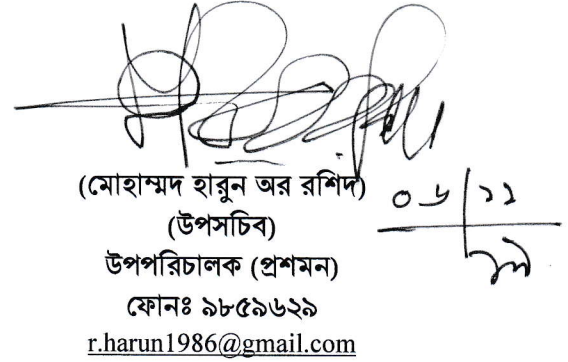 (মোহাম্মদ হারুন অর রশিদ)
(উপসচিব)
উপপরিচালক (প্রশমন)
ফোনঃ ৯৮৫৯৬২৯
r.harun1986@gmail.com
০৬ | ১১
১৯